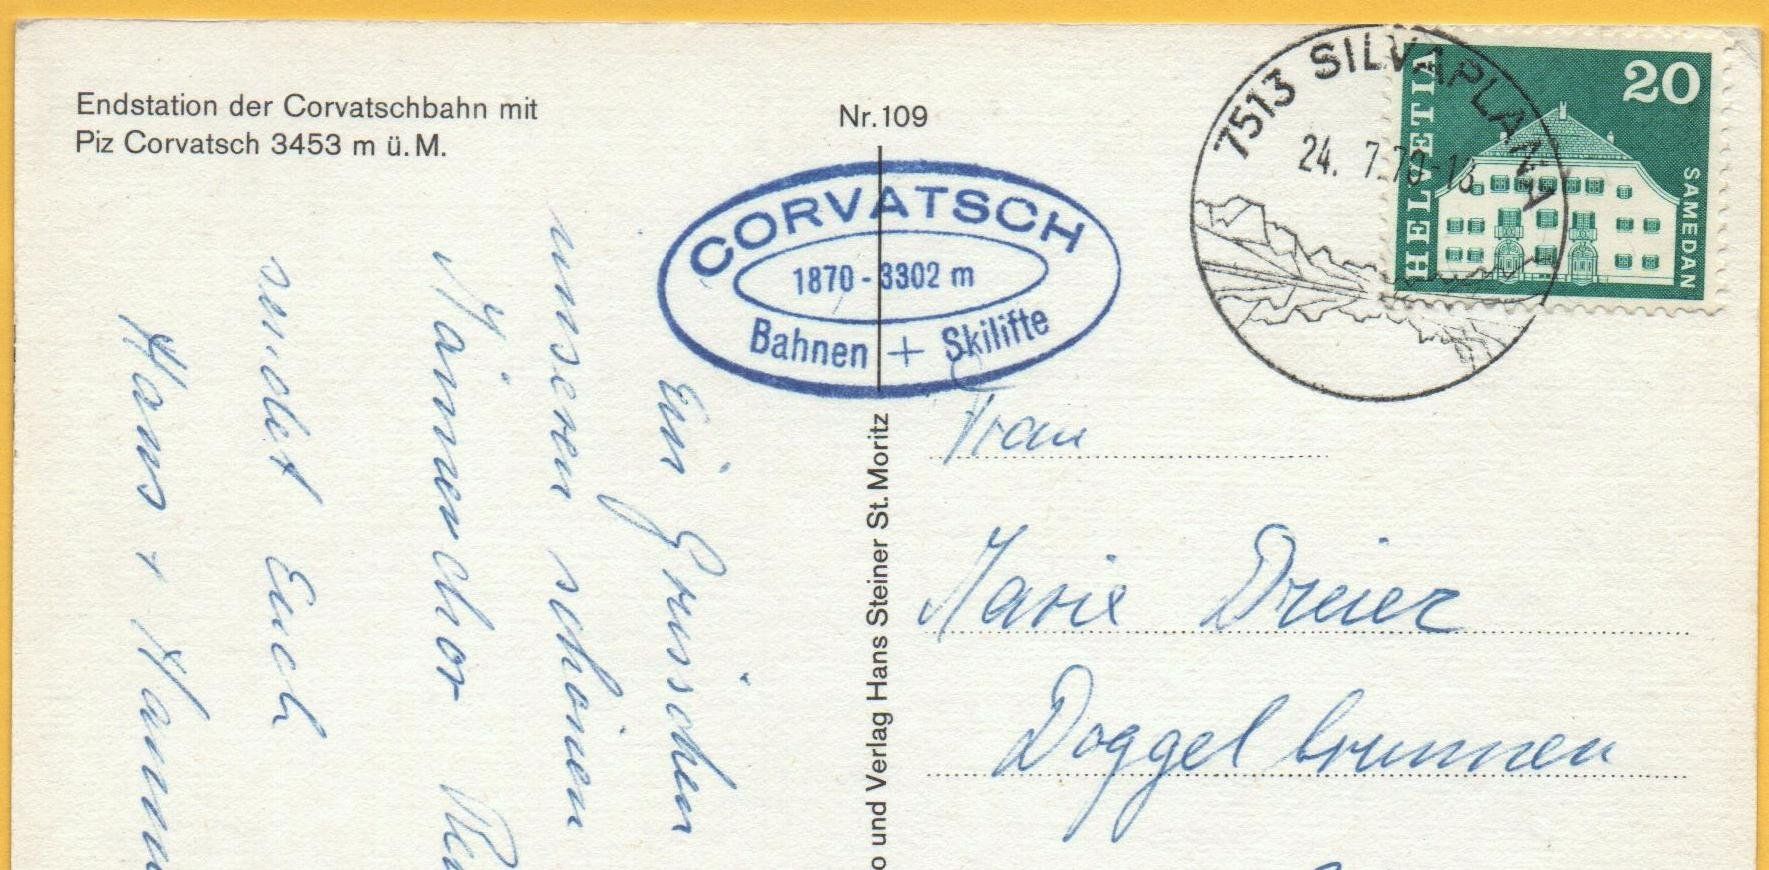 Endstation der Corvatschbahn mit
Piz Corvatsch 3453 m ü. M.
Nr. 109
CORVATSCH
1870 - 3302 m
Bahnen + Skilifte
7513 SILVAPLANA
24. 7.70-18
HELVETIA
20
SAMEDAN
o und Verlag Hans Steiner St. Moritz
Ein
unseren schönen
Männerchor
sendet Euch
Hans +
Frau
Marie Dreier
Doggelbrunnen